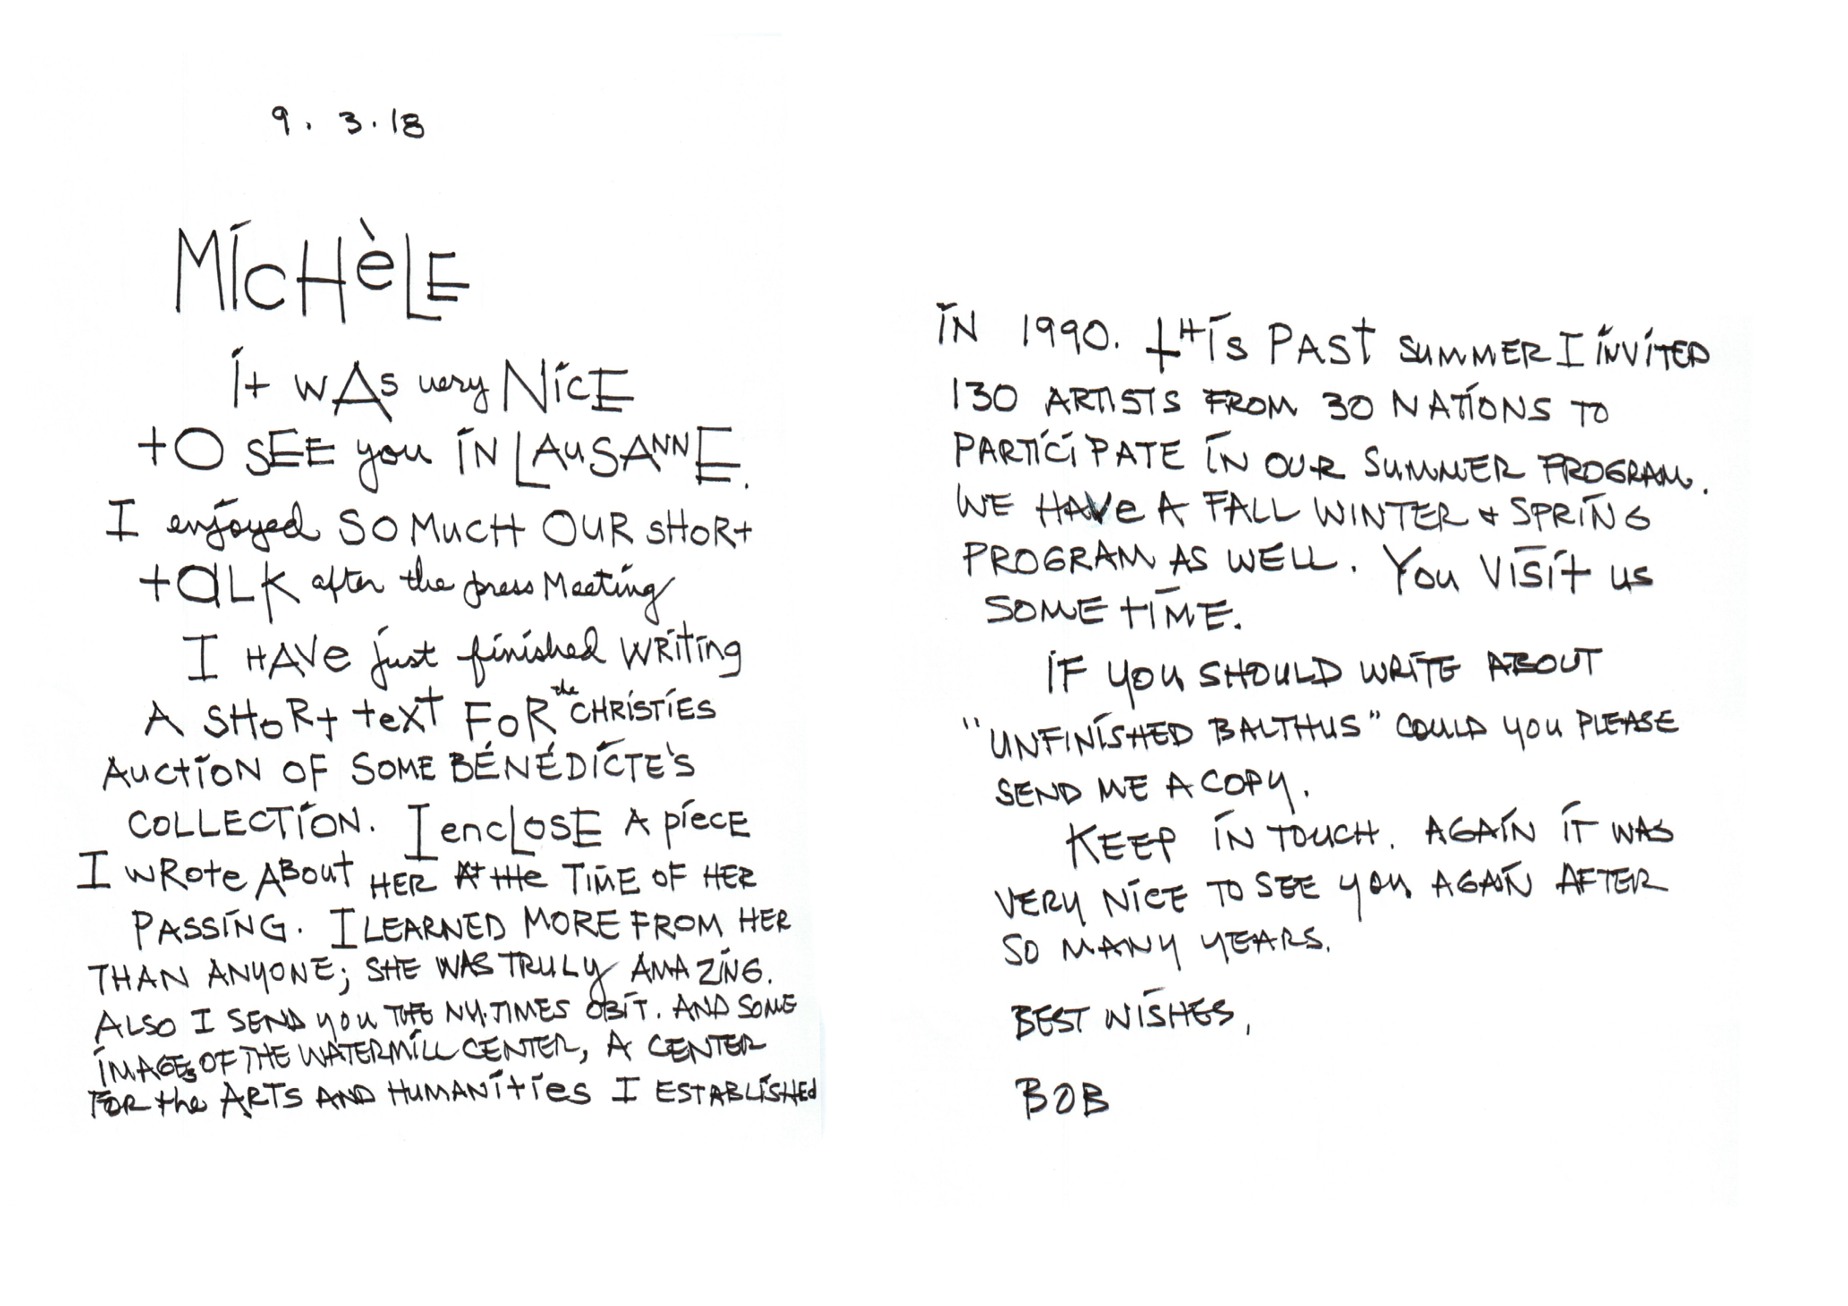 9. 3. 18
MicHèLE
it wAs very NicE
tO SEE you iN LAuSANNE.
I enjoyed SO MucH OUR sHORt
taLK after the press Meeting
I HAVe just finished WRiting
A SHoRt teXT FoR the CHRiSTiES
AuctiON OF SOME BÉNÉDiCTE'S
COLLECTiON. I encLOSE A piecE
I wRote ABout HER At tHe TiME OF HER
PASSiNG. I LEARNED MORE FROM HER
THAN ANYONE; SHE WAS TRULY AMAZiNG.
ALSO I SEND you THE NY.TiMES OBiT. AND SOME
iMAGEs OF THE WATERMiLL CENTER, A CENTER
FOR the ARTS AND HUMANitiES I ESTABLiSHEd
iN 1990. tHiS PASt SUMMER I iNViTED
130 ARTiSTS FROM 30 NATiONS TO
PARTiCiPATE iN OUR SUMMER PROGRAM.
WE HAVe A FALL WINTER & SPRiNG
PROGRAM AS WELL. You ViSit us
SOME tiME.
iF you SHOULD WRiTE ABOUT
"UNFiNiSHED BALTHUS" COULD you PLEASE
SEND ME A COPY.
KEEP iN TOUCH. AGAiN iT WAS
VERY NiCE TO SEE you AGAiN AFTER
SO MANY YEARS.
BEST WiSHES,
BOB